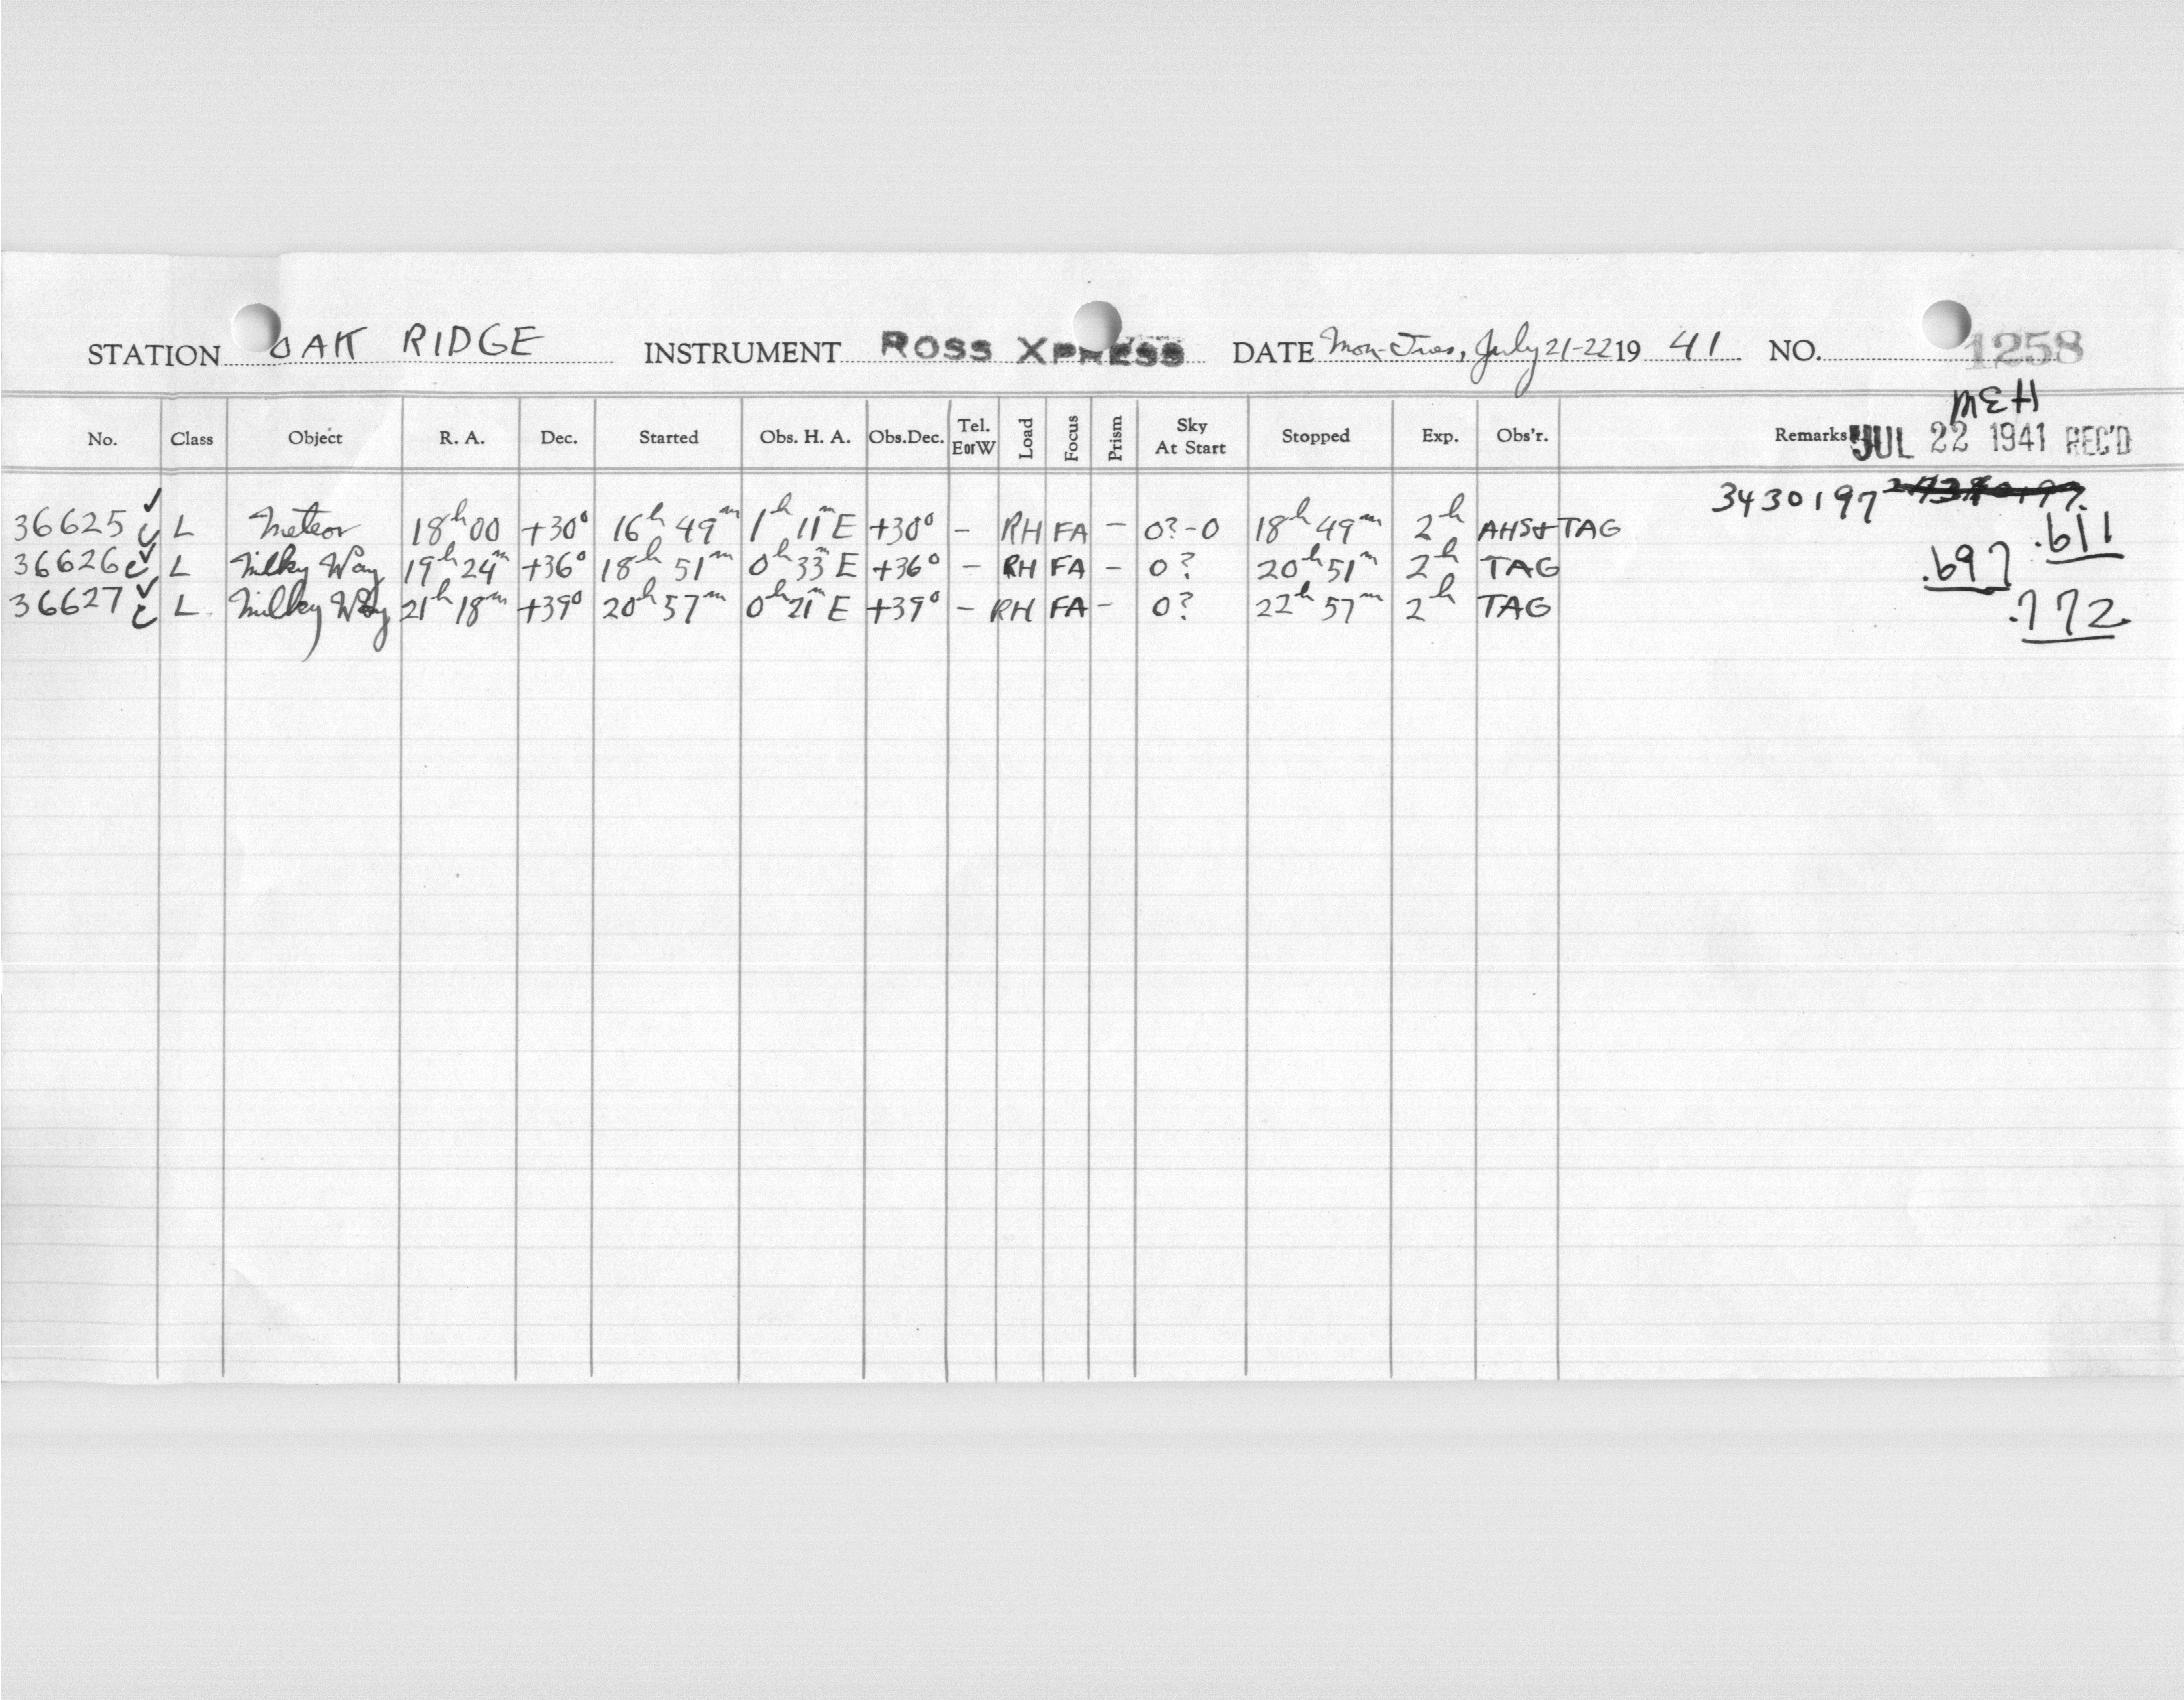 STATION OAK RIDGE INSTRUMENT ROSS XPRESS DATE Mon-Tues, July 21-22 19 41 NO. 1258
MEH
No. Class Object R. A. Dec. Started Obs. H. A. Obs.Dec. Tel. EorW Load Focus Prism Sky At Start Stopped Exp. Obs'r. Remarks JUL 22 1941 REC'D
3430197
36625 ✓ c L Meteor 18h00 +30° 16h 49m 1h 11m E +30° - RH FA - 0?-0 18h 49m 2h AHS+TAG .611
36626 ✓ c L Milky Way 19h 24m +36° 18h 51m 0h 33m E +36° - RH FA - 0? 20h 51m 2h TAG .697
36627 ✓ c L Milky Way 21h 18m +39° 20h 57m 0h 21m E +39° - RH FA - 0? 22h 57m 2h TAG .772